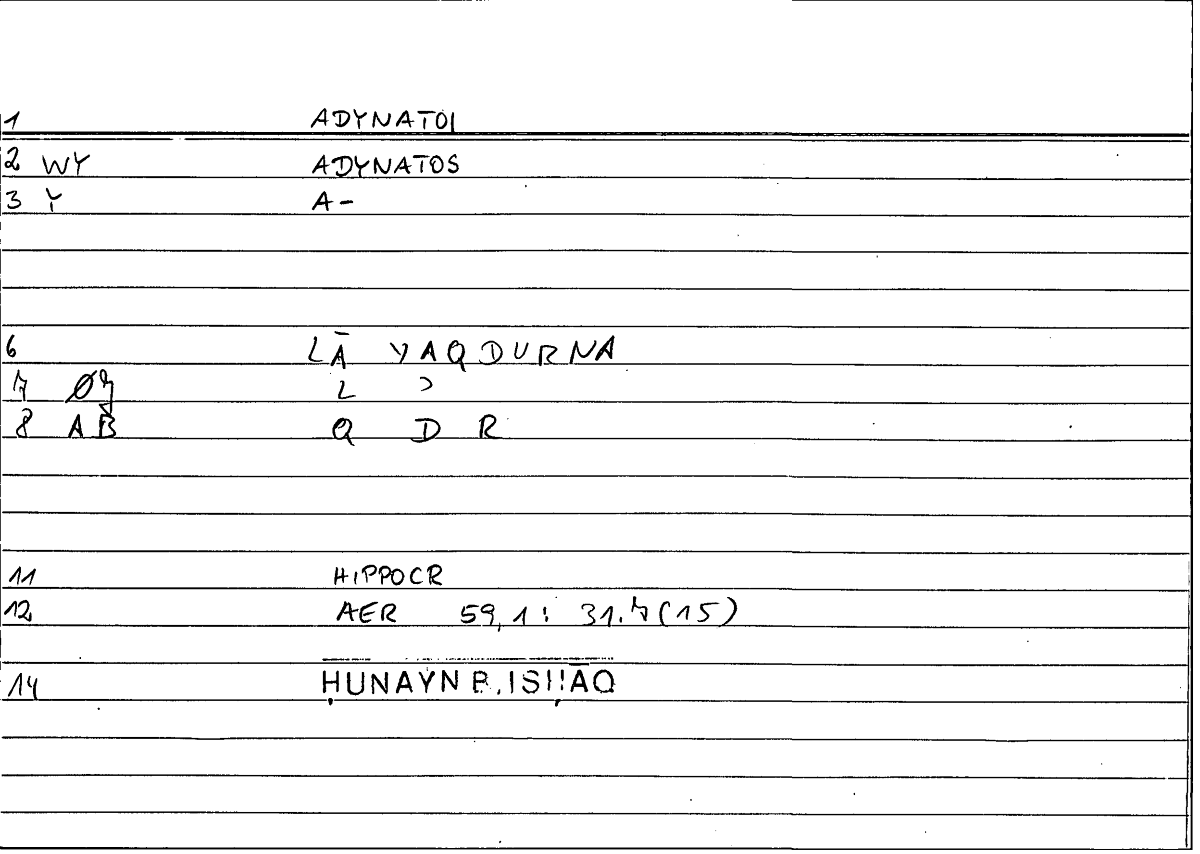 1 ADYNATOI
2 WY ADYNATOS
3 Y A-
6 LĀ YAQDURNA
7 L ʾ
8 AB Q D R
11 HIPPOCR
12 AER 59,1: 31.7(15)
14 ḤUNAYN B. ISḤĀQ